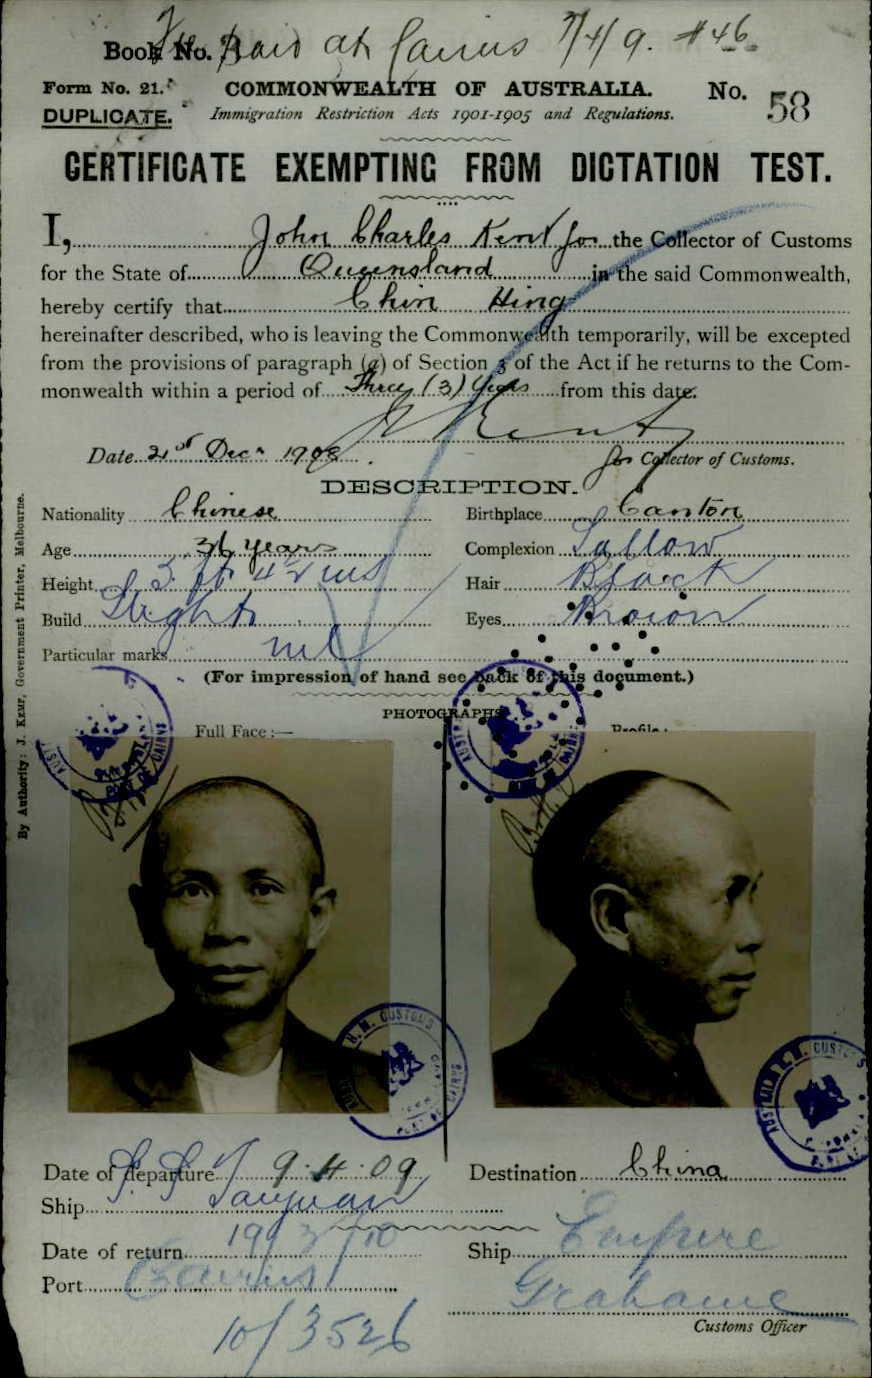 Book No. Fee Paid at Cairns 7/4/9. #46.
Form No. 21. COMMONWEALTH OF AUSTRALIA. No. 58
DUPLICATE. Immigration Restriction Acts 1901-1905 and Regulations.
CERTIFICATE EXEMPTING FROM DICTATION TEST.
I, John Charles Kent for the Collector of Customs
for the State of Queensland in the said Commonwealth,
hereby certify that Chin Hing
hereinafter described, who is leaving the Commonwealth temporarily, will be excepted
from the provisions of paragraph (a) of Section 3 of the Act if he returns to the Com-
monwealth within a period of Three (3) Years from this date.
Kent
Date 21st Decr 1908 for Collector of Customs.
DESCRIPTION.
Nationality Chinese Birthplace Canton
Age 36 years Complexion Sallow
Height 5 ft 4½ ins Hair Black
Build Slight Eyes Brown
Particular marks nil
(For impression of hand see back of this document.)
PHOTOGRAPHS
Full Face:— Profile:
By Authority: J. Kemp, Government Printer, Melbourne.
PORT OF CAIRNS
PORT OF CAIRNS
H. M. CUSTOMS
PORT OF CAIRNS
AUSTRALIA H. M. CUSTOMS
Date of departure 9.4.09 Destination China
Ship S. S. Taiyuan
Date of return 19/3/10 Ship Empire
Port Cairns Grahame
Customs Officer
10/3526